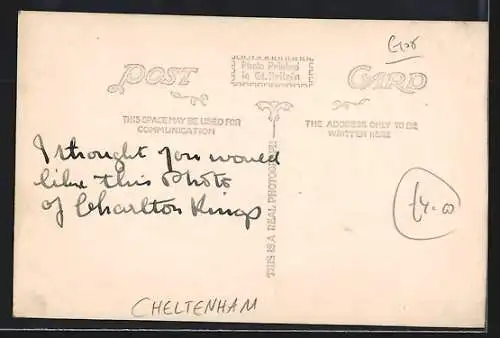 Glos
POST CARD
Photo Printed
in Gt. Britain
THIS SPACE MAY BE USED FOR
COMMUNICATION
THE ADDRESS ONLY TO BE
WRITTEN HERE
THIS IS A REAL PHOTOGRAPH
I thought you would
like this Photo
of Charlton Kings
£4-00
CHELTENHAM